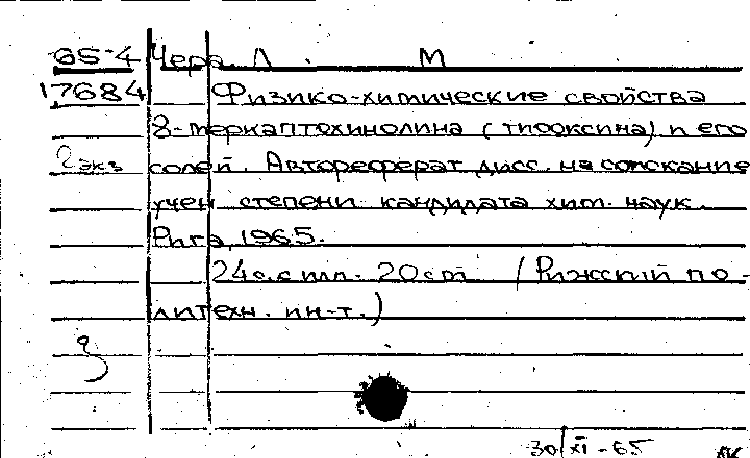 65-4 Чера Л. М
17684 Физико-химические свойства
8-меркаптохинолина (тиооксина) и его
2 экз солей. Автореферат дисс. на соискание
учен степени кандидата хим. наук.
Рига, 1965.
24 с. с илл. 20 см (Рижский по-
литехн. ин-т.)
30/XI-65